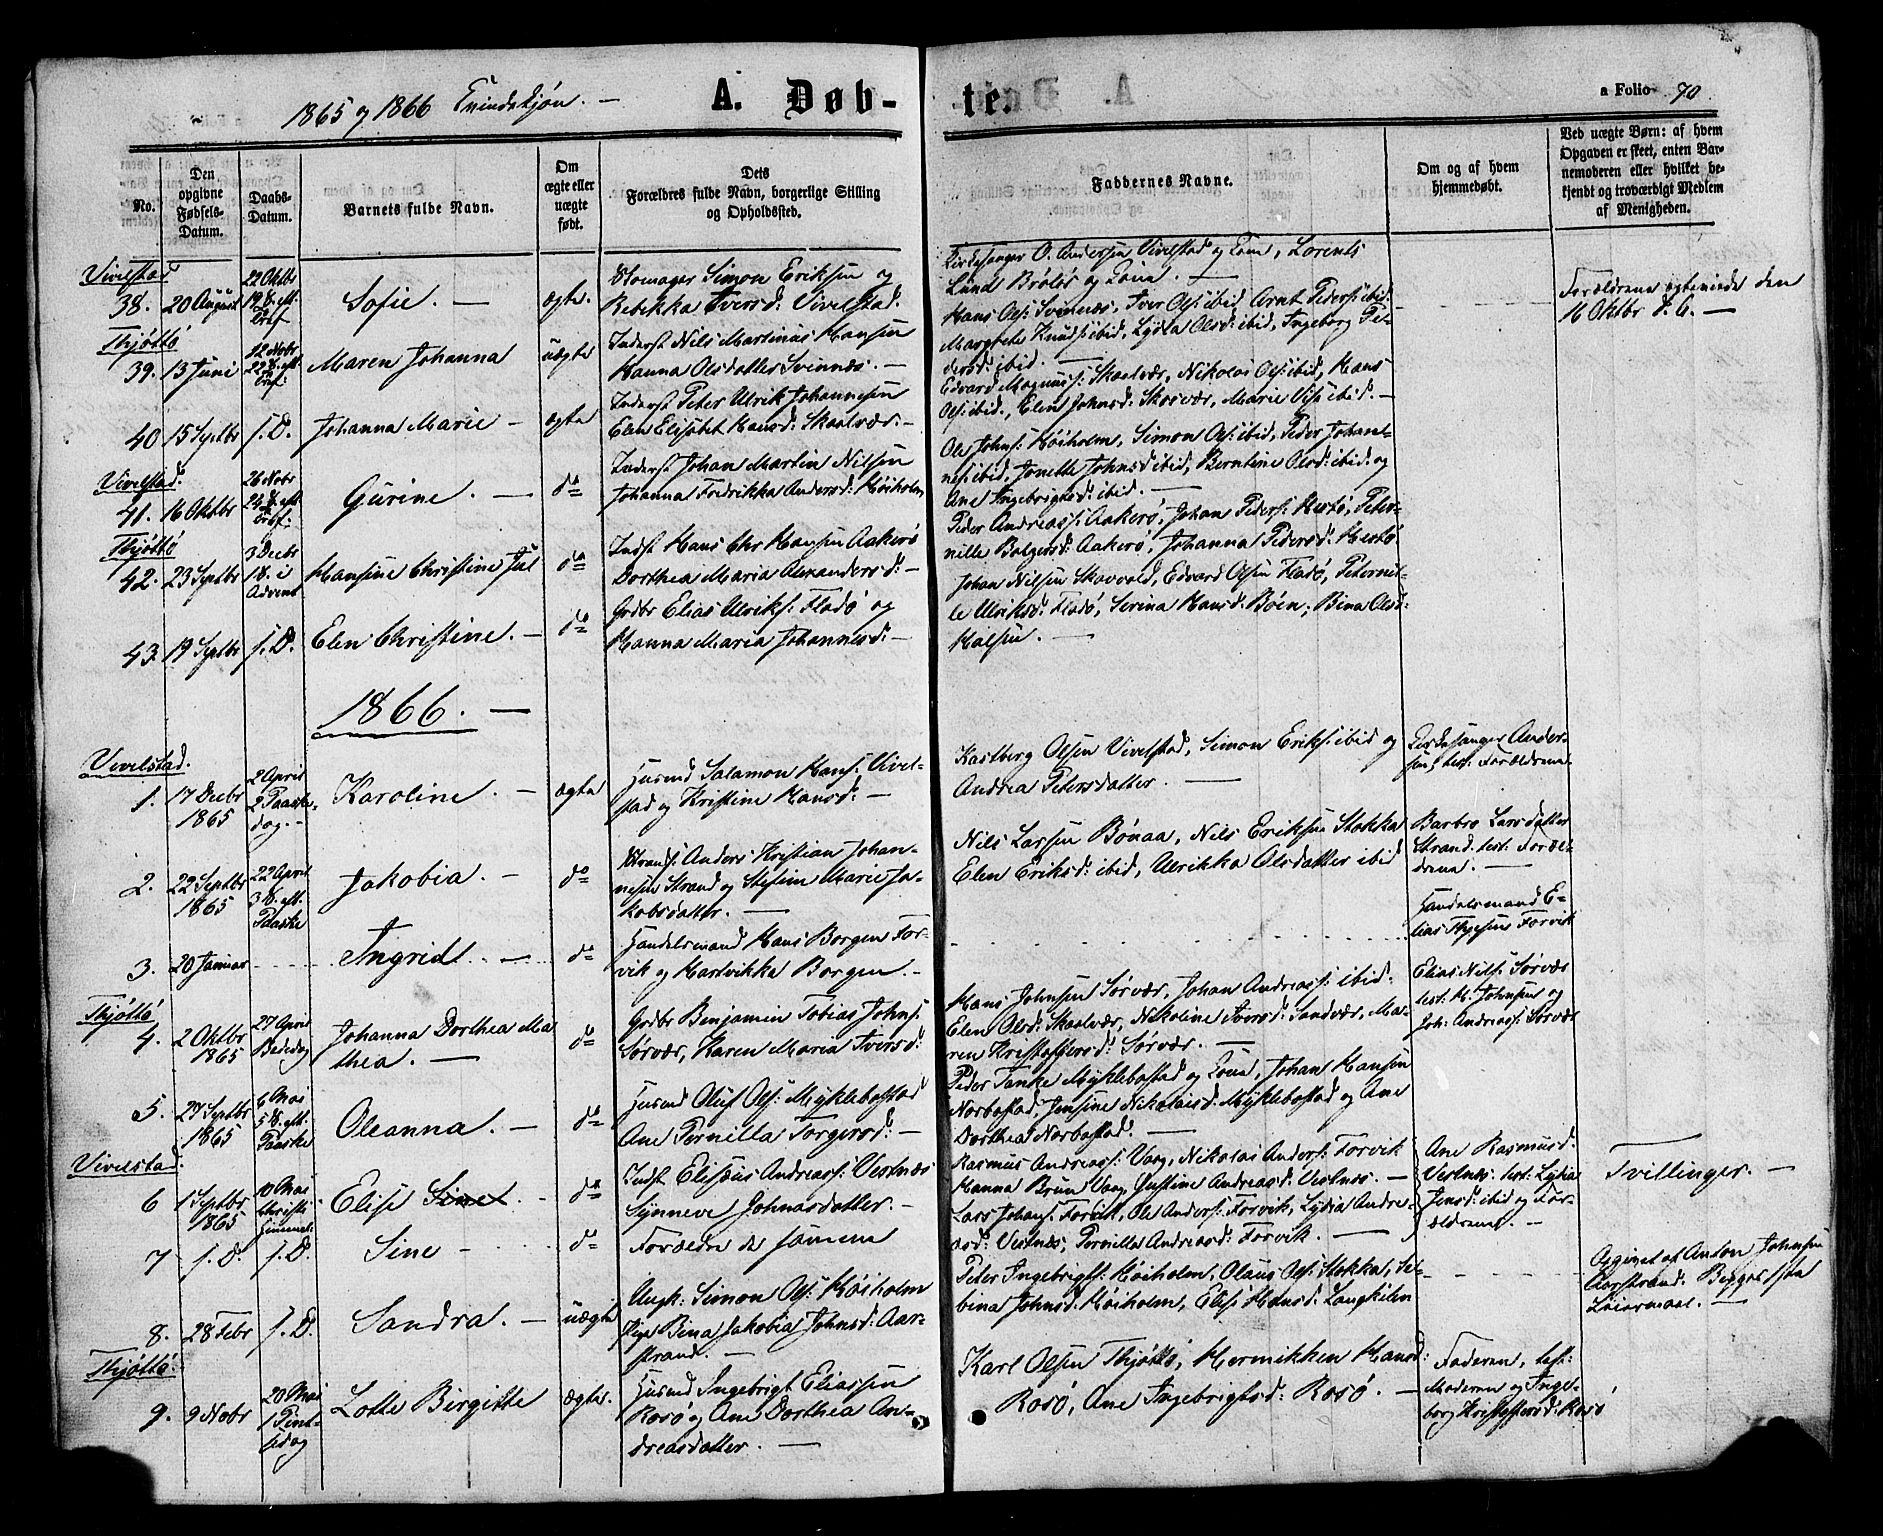 1865 og 1866
A. Døb-
te.
a Folio 90
No.
Den
opgivne
Fødsels-
Datum.
Daabs-
Datum.
Barnets fulde Navn.
Om
ægte eller
uægte
født.
Dets
Forældres fulde Navn, borgerlige Stilling
og Opholdssted.
Faddernes Navne.
Om og af hvem
hjemmedøbt.
Ved uægte Børn: af hvem
Opgaven er skeet, enten Bar-
nemoderen eller hvilket be-
kjendt og troværdigt Medlem
af Menigheden.
Vivelstad
38. 20 August
22 Oktbr
19 S. eft.
Sofie. —
ægte.
Simon Eriksen og
Rebekka Iversd: Vivelstad.
Kirkesanger O. Andersen Vivelstad og Kone, Lorents
Lund Brøløs og Kone. —
Forældrene egteviede den
16 Oktbr d. A. —
Thjøttø
39. 13 Juni
12 Nobr
22 S. eft.
Maren Johanna
uægte
Inderst Nils Martinus Hansen
Hanna Olsdatter Svinnæs. —
Hans Ols: Svinnæs, Iver Ols: ibid Arnt Peders: ibid.
Margrete Knuds: ibid, Lydia Olsd: ibid, Ingeborg Pe-
dersd: ibid. —
40 15 Septbr
s. D.
Johanna Marie —
ægte
Inderst Peter Ulrik Johannesen
Elen Elisabet Hansd: Skaalvær. —
Edvard Magnus: Skaalvær, Nikolai Ols: ibid, Hans
Ols: ibid., Elen Johnsd: Skosvær, Marie ibid. —
Vivelstad.
41. 16 Oktbr
26 Nobr
24 S. eft.
Gurine. —
do
Inderst Johan Martin Nilsen
Johanna Fredrikka Andersd: Høiholm
Ole Johns: Høiholm, Simon Ols: ibid, Peder Johan-
nes: ibid, Jonette Johnsd ibid, Berntine Olsd: ibid. og
Ane Ingebrigtsd: ibid. —
Thjøttø
42. 23 Septbr
3 Decbr
1 S. i
Advent
Hansine Christine Jul
do
Indst Hans Chr Hansen Aakerø
Dorthea Maria Alexandersd: —
Peder Andreass: Aakerø, Johan Peders: Hestø, Peter-
nille Bolgersd: Aakerø, Johanna Pedersd: Hestø
43. 19 Septbr
s. D.
Elen Christine. —
do
Grdbr Elias Ulriks: Fladø og
Hanna Maria Johannesd: —
Johan Nilsen Skavvold, Edvard Olsen Fladø, Peternil-
le Ulriksd: Fladø, Serina Hansd: Bøen; Bina Olsd:
Halsen. —
1866. —
Vivelstad.
1. 17 Decbr
1865
2 April
2 Paaske-
dag. —
Karoline. —
ægte
Husmd Salamon Hans: Vivel-
stad og Kristine Hansd: —
Karlberg Olsen Vivelstad, Simon Eriks: ibid og
Andrea Petersdatter. —
Kirkesanger Ander-
sen, test. Forældrene.
2. 22 Septbr
1865
22 April
3 S. eft.
Paaske
Jakobia. —
do
Strands: Anders Kristian Johan-
nesen Strand og Stefine Marie Ja-
kobsdatter. —
Nils Larsen Bønaa, Nils Eriksen Stokka
Elen Eriksd: ibid, Ulrikka Olsdatter ibid
Barbro Larsdatter
Strand. test. Foræl-
drene. —
3. 20 Januar
Ingrid —
do
Handelsmand Hans Borgen For-
vik og Hartvikka Borgen. —
Handelsmand E-
lias Thygesen Forvik
Thjøttø
4. 2 Oktbr
1865
27 April
Bededag
Johanna Dorthea Ma
thea. —
do
Grdbr Benjamin Tobias Johns:
Sørvær, Karen Maria Iversd:
Hans Johnsen Sørvær, Johan Andreass: ibid.
Elen Olsd: Skaalvær, Nikoline Iversd: Sandvær, Ma-
ren Kristoffersd: Sørvær. —
Elias Nils: Sørvær
test. H. Johnsen og
Joh: Andreass: Sørvær
5. 27 Septbr
1865
6 Mai
5 S. eft.
Paaske
Oleanna. —
do
Husmd Oluf Ols: Myklebostad
Ane Pernilla Torgersd: —
Peder Tanke Myklebostad og Kone, Johan Hansen
Norbostad, Jensine Nikolaisd. Myklebostad og Ane
Dorthea Norbostad. —
Vivelstad.
6 1 Septbr
1865
10 Mai
Christi
Himmel.
Elise Sine —
do
Indst Elisæus Andreass: Vestnæs
Synneve Johnasdatter. —
Rasmus Andreass: Vaag, Nikolai Anders: Forvik
Hanna Brun Vaag, Justine Andreasd: Vestnæs. —
Ane Rasmusd:
Vestnæs. test. Lydia
Jensd: ibid og For-
ældrene. —
Tvillinger. —
7 s. D. s. D.
Sine —
do
Forældre de samme
Lars Johans: Forvik, Ole Anders: Forvik, Lydia Andre-
asd: Vestnæs, Pernilla Andreasd: Forvik. —
8. 28 Febr
s. D.
Sandra. —
uægte
Ungk: Simon Ols: Høiholm
Pige Bina Jakobia Johnsd: Aar-
strand. —
Peter Ingebrigts: Høiholm, Olaus Ols: Stokka, Se-
bina Johnsd. Høiholm, Elise Hansd: Langkilen
Opgivet af Anton Johnsen
Aarstrand. Begges 1ste
Leiermaal. —
Thjøttø.
9. 9 Nobr
20 Mai
1 Pint-
sedag
Lotte Birgitte
ægte.
Husmd Ingebrigt Eliassen
Rosø og Ane Dorthea An-
dreasdatter. —
Karl Olsen Thjøttø, Hermikken Hansd:
Rosø, Ane Ingebrigtsd: Rosø. —
Faderen, test:
Moderen og Inge-
borg Kristoffersd: Rosø